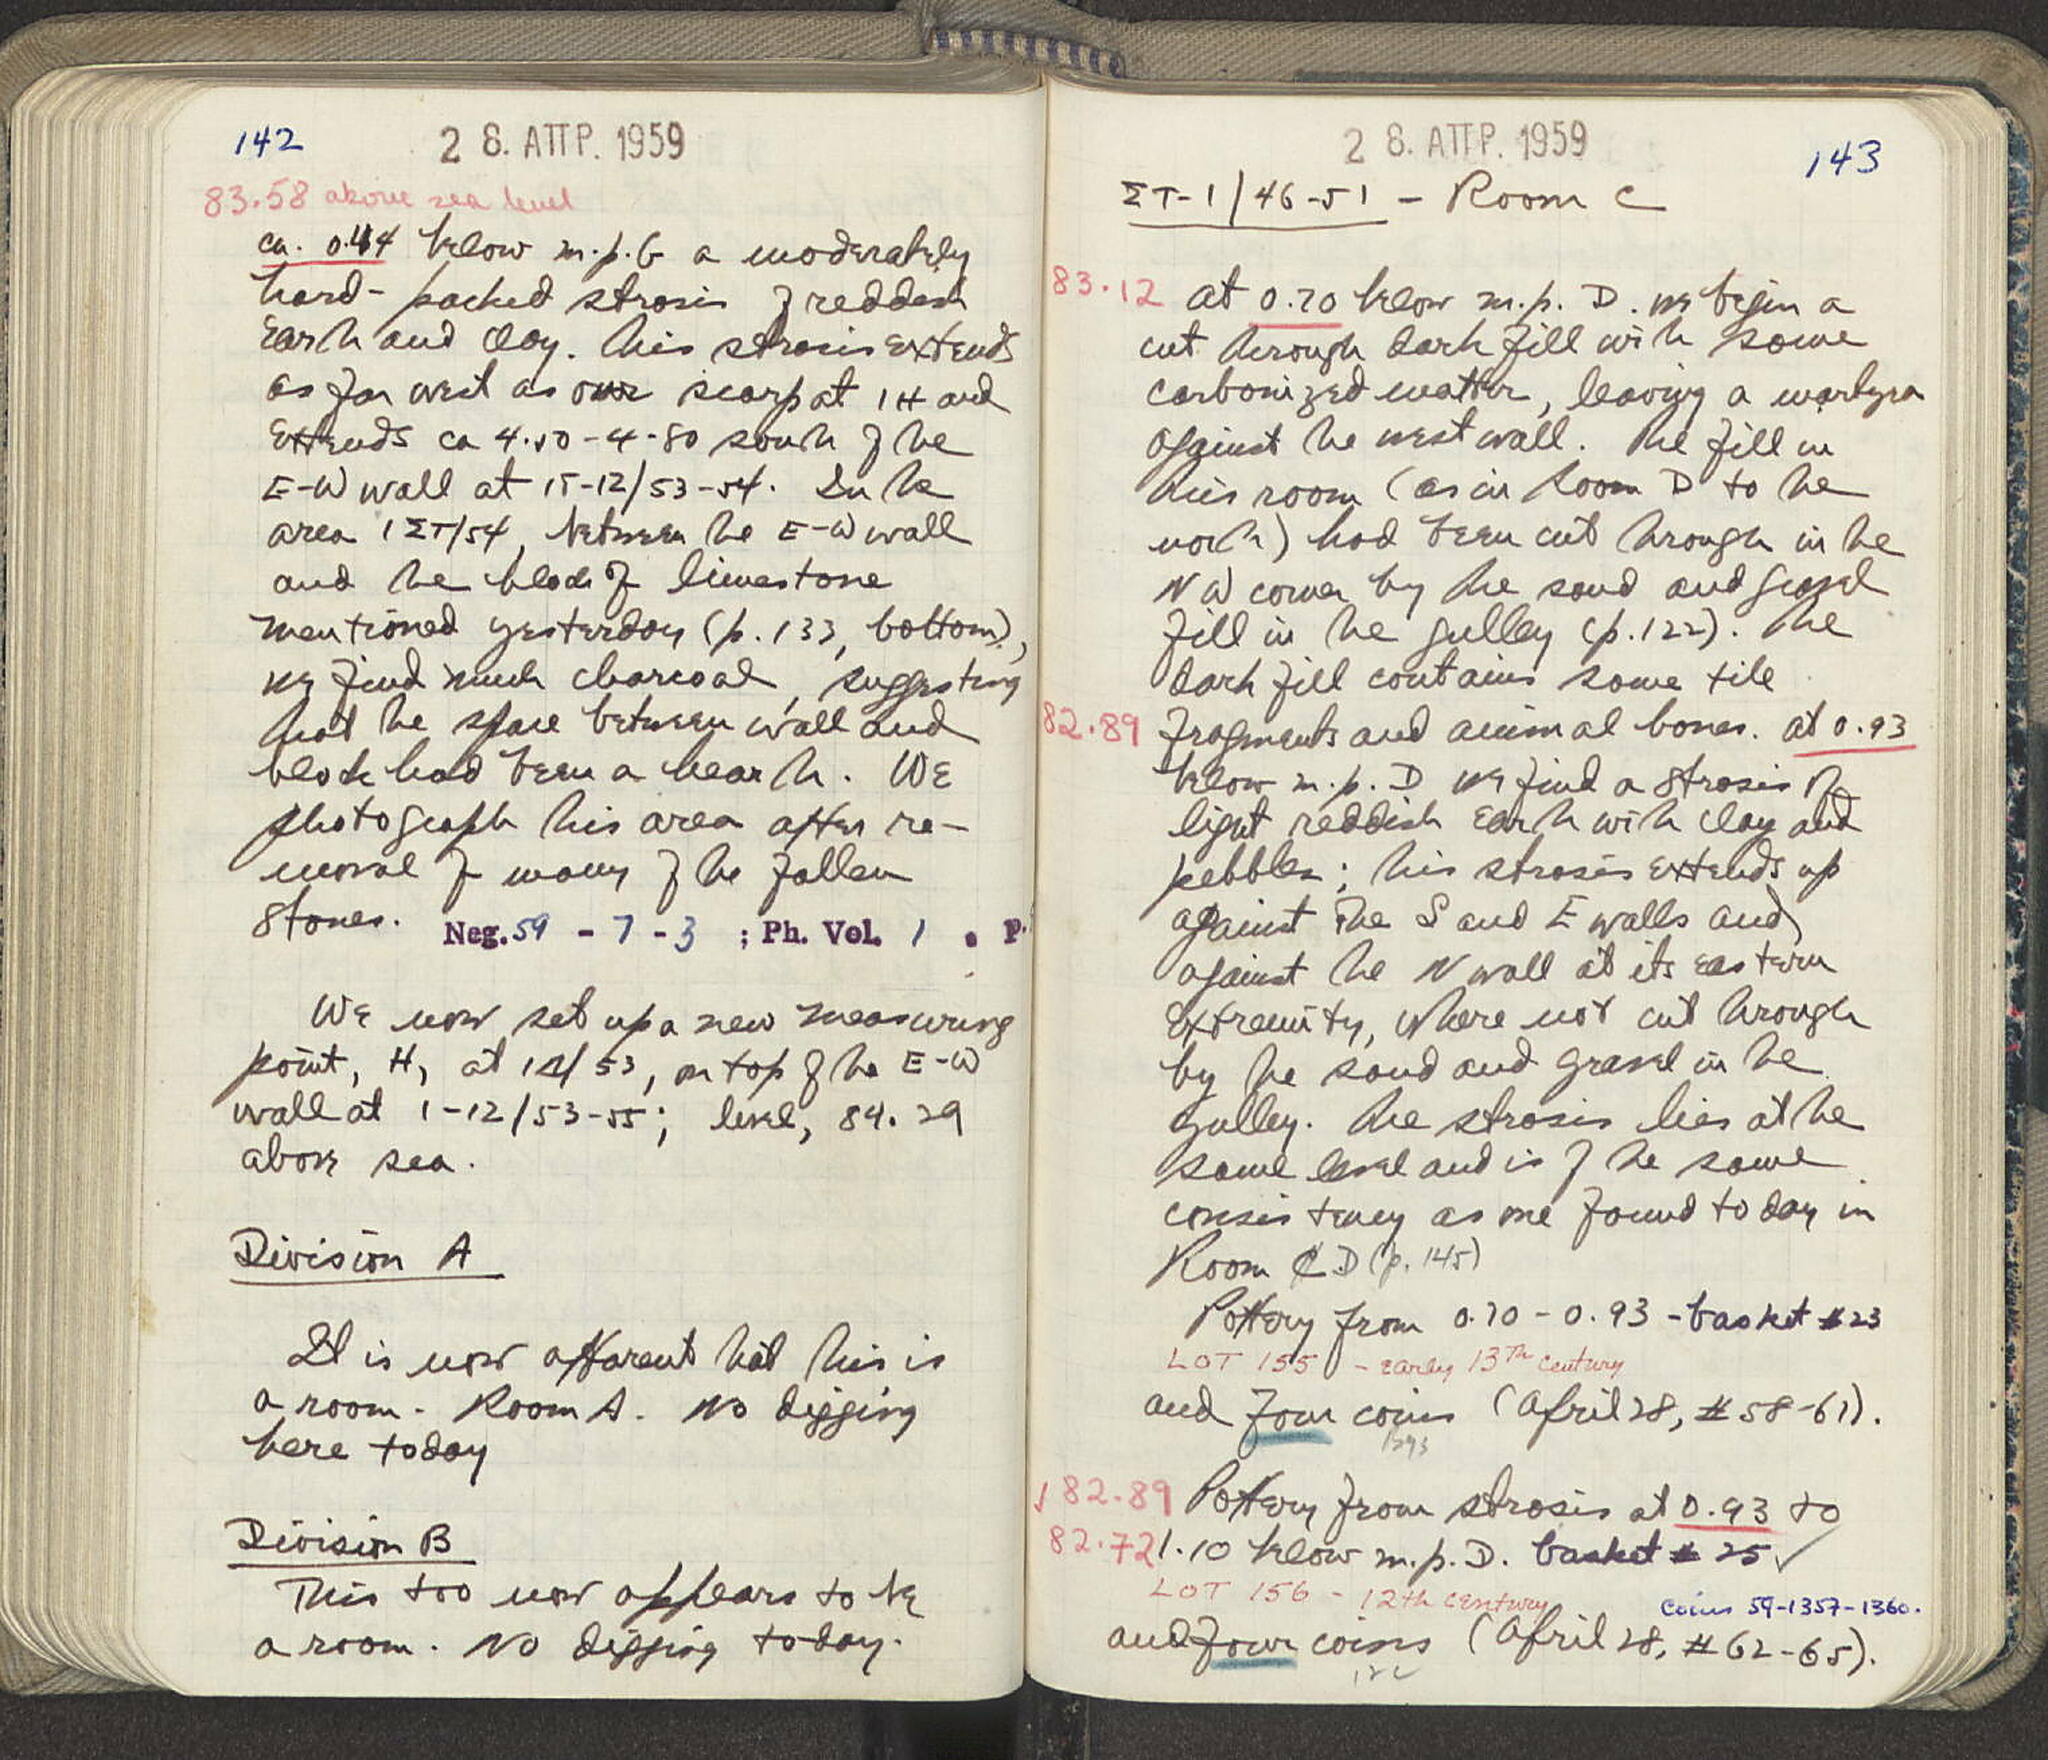 142
28. ΑΠΡ. 1959
83.58 above sea level
ca. 0.44 below m.p. G a moderately
hard-packed strosis of reddish
earth and clay. This strosis extends
as far west as our scarp at 1H and
extends ca 4.50-4.80 south of the
E-W wall at 1Γ-12/53-54. In the
area 1ΣΤ/54, between the E-W wall
and the block of limestone
mentioned yesterday (p. 133, bottom),
we find much charcoal, suggesting
that the space between wall and
block had been a hearth. We
photograph this area after re-
moval of many of the fallen
stones. Neg. 59 - 7 - 3 ; Ph. Vol. 1 . p.
We now set up a new measuring
point, H, at /53, on top of the E-W
wall at 1-12/53-55; level, 84.29
above sea.
Division A
It is now apparent that this is
a room - Room A. No digging
here today
Division B
This too now appears to be
a room. No digging today.
143
28. ΑΠΡ. 1959
ΣΤ-1/46-51 - Room C
83.12 at 0.70 below m.p. D. we begin a
cut through dark fill with some
carbonized matter, leaving a martyra
against the west wall. The fill in
this room (as in Room D to the
north) had been cut through in the
NW corner by the sand and gravel
fill in the gulley (p.122). The
dark fill contains some tile
82.89 fragments and animal bones. at 0.93
below m.p. D we find a strosis of
light reddish earth with clay and
pebbles; this strosis extends up
against the S and E walls and
against the N wall at its eastern
extremity, where not cut through
by the sand and gravel in the
gulley. The strosis lies at the
same level and is of the same
consistency as one found today in
Room C D (p. 145)
Pottery from 0.70-0.93 - basket #23
LOT 155 - early 13th century
and four coins (April 28, #58-61).
82.89 Pottery from strosis at 0.93 to
82.72 1.10 below m.p. D. basket # 25 ✓
LOT 156 - 12th century
coins 59-1357-1360.
and four coins (April 28, #62-65).